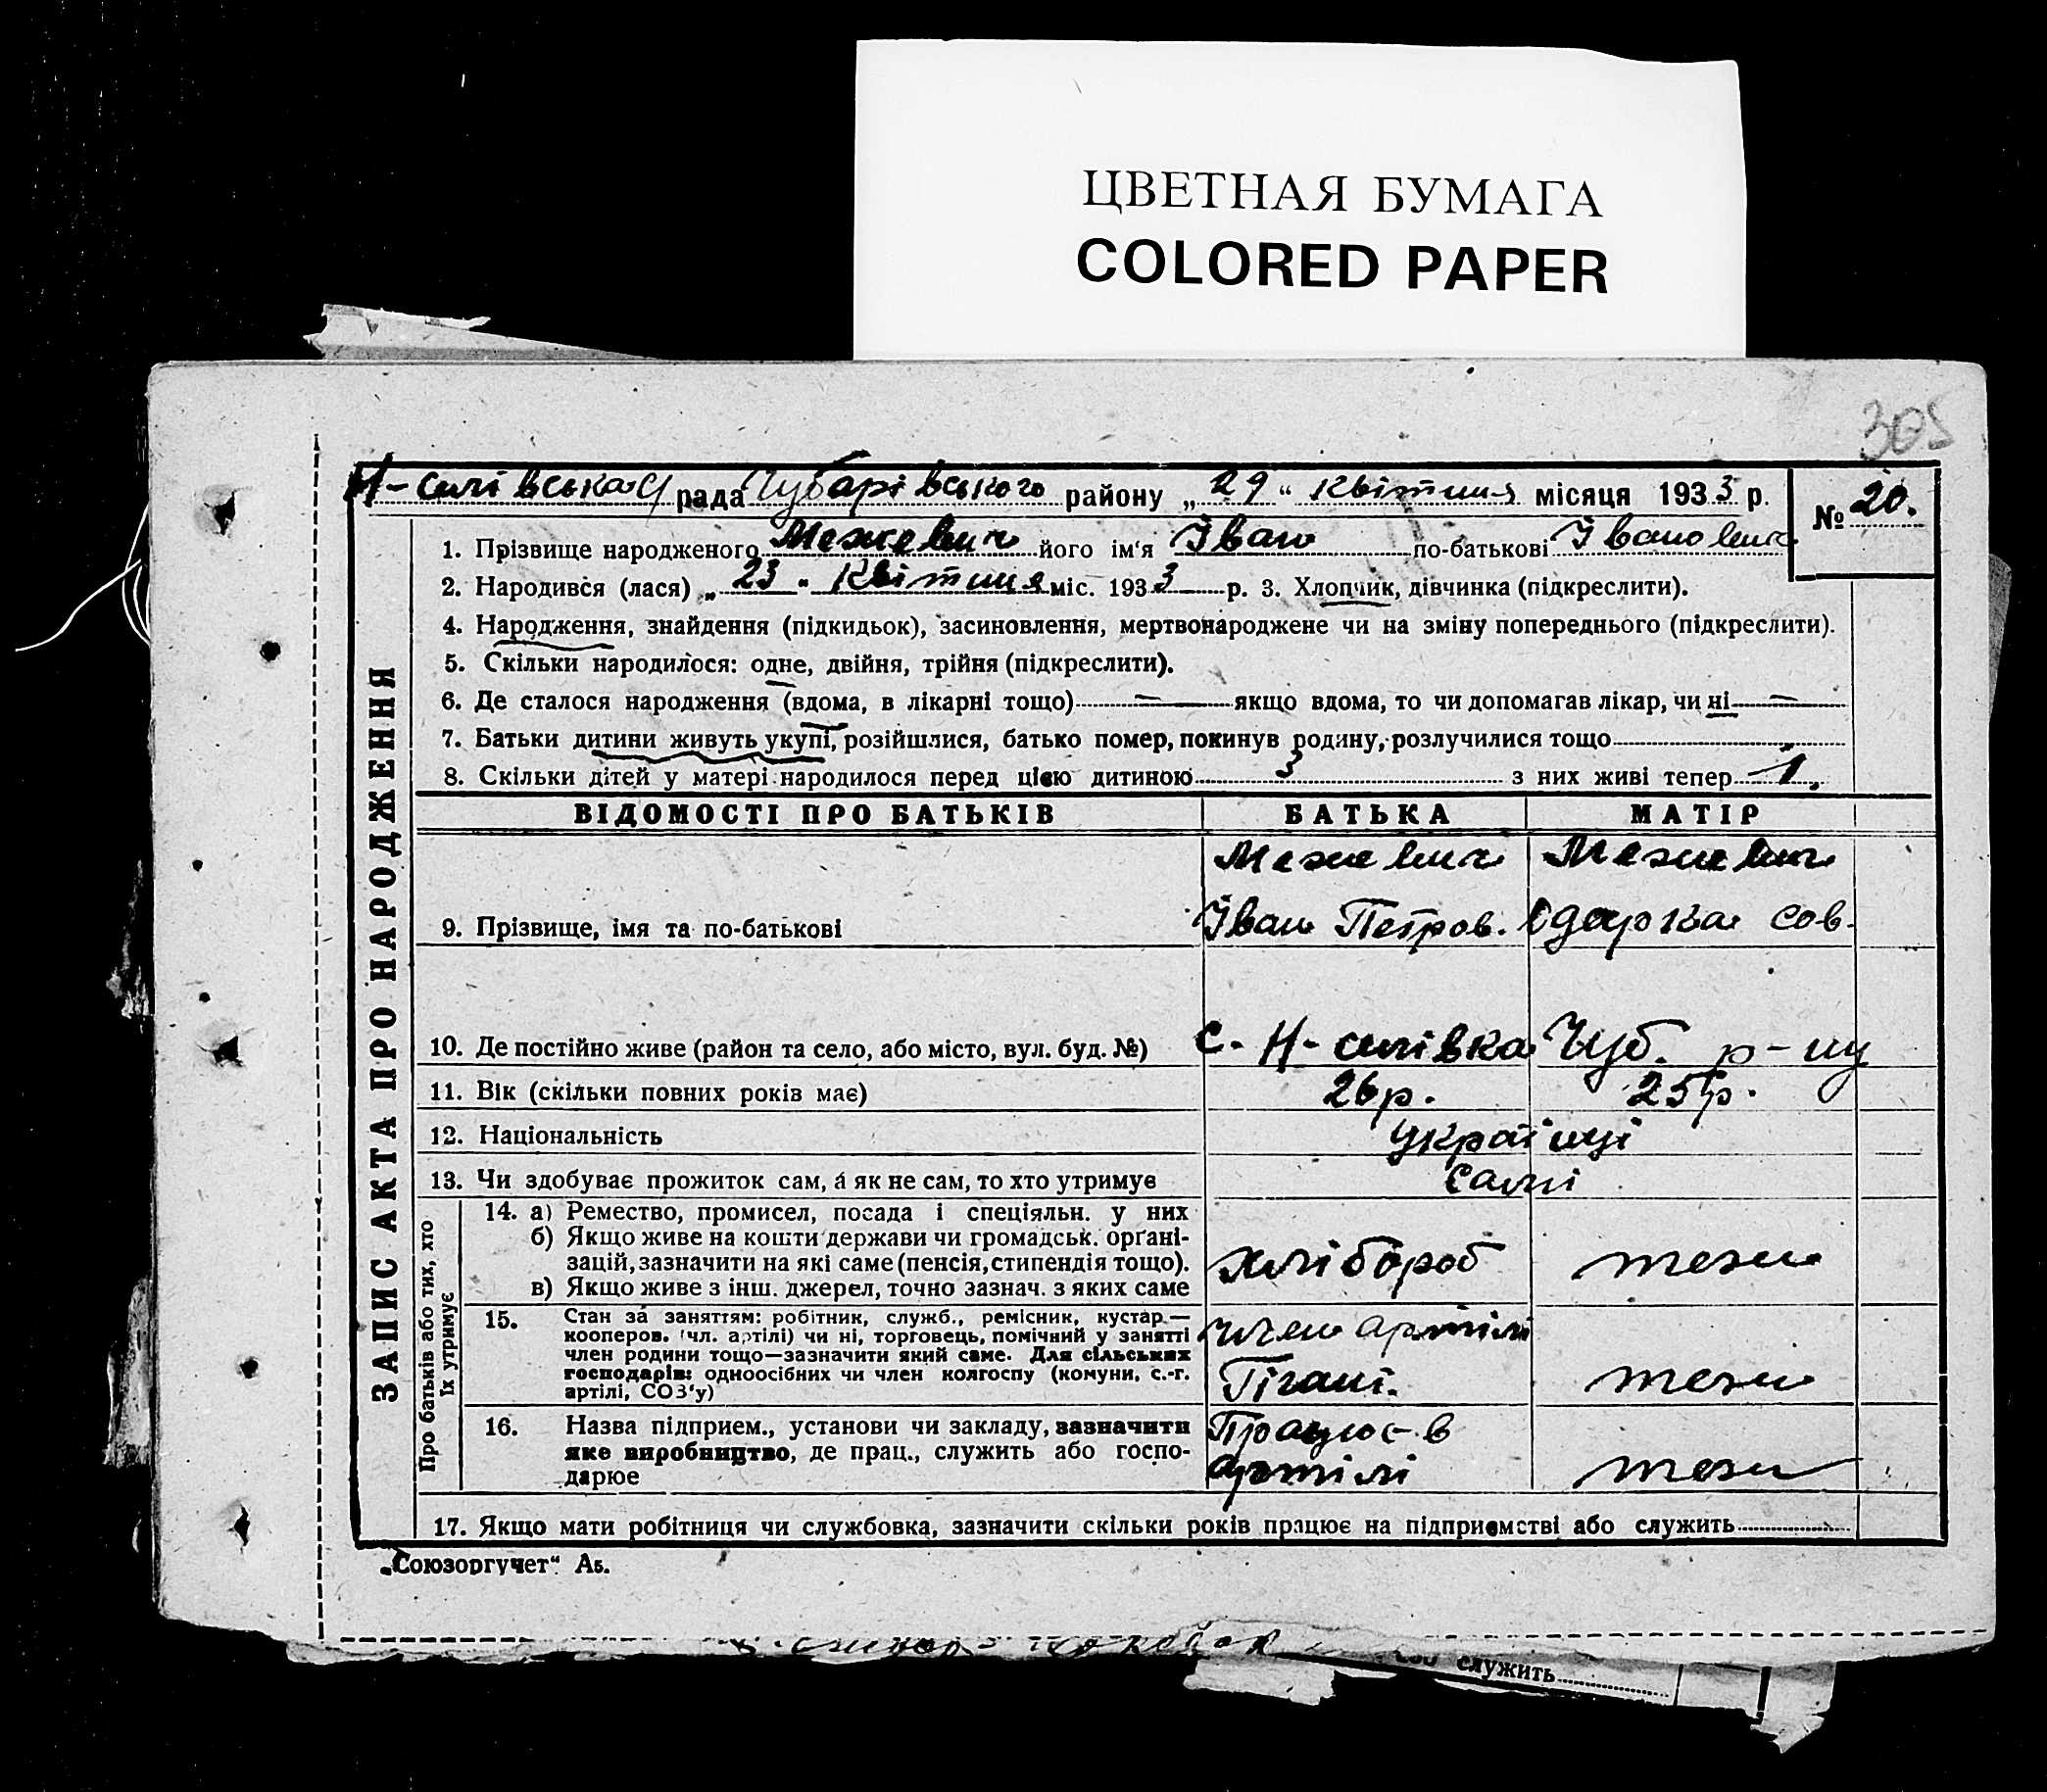 ЦВЕТНАЯ БУМАГА
COLORED PAPER
305
Н-сілівська рада Чубарівського району „29“ квітня місяця 1933 р.
№ 20.
ЗАПИС АКТА ПРО НАРОДЖЕННЯ
1. Прізвище народженого Межевич його ім'я Іван по-батькові Іванович
2. Народився (лася) „23" квітня міс. 1933 р. 3. Хлопчик, дівчинка (підкреслити).
4. Народження, знайдення (підкидьок), засиновлення, мертвонароджене чи на зміну попереднього (підкреслити).
5. Скільки народилося: одне, двійня, трійня (підкреслити).
6. Де сталося народження (вдома, в лікарні тощо) — якщо вдома, то чи допомагав лікар, чи ні —
7. Батьки дитини живуть укупі, розійшлися, батько помер, покинув родину, розлучилися тощо
8. Скільки дітей у матері народилося перед цією дитиною 3 з них живі тепер 1.
ВІДОМОСТІ ПРО БАТЬКІВ БАТЬКА МАТІР
Межевич Межевич
9. Прізвище, імя та по-батькові Іван Петров. Одарка Сов.
10. Де постійно живе (район та село, або місто, вул. буд. №) с. Н-силівка Чуб. р-ну
11. Вік (скільки повних років має) 26 р. 25 р.
12. Національність українці
13. Чи здобуває прожиток сам, а як не сам, то хто утримує самі
Про батьків або тих, хто
їх утримує
14. а) Ремество, промисел, посада і спеціяльн. у них
б) Якщо живе на кошти держави чи громадськ. орґані-
зацій, зазначити на які саме (пенсія, стипендія тощо).
в) Якщо живе з інш. джерел, точно зазнач. з яких саме
хлібороб теж
15. Стан за заняттям: робітник, служб., ремісник, кустар—
кооперов. (чл. артілі) чи ні, торговець, помічний у занятті
член родини тощо—зазначити який саме. Для сільських
господарів: одноосібних чи член колгоспу (комуни, с.-г.
артілі, СОЗ'у)
член артілі
Гігант. теж
16. Назва підприєм., установи чи закладу, зазначити
яке виробництво, де прац., служить або госпо-
дарює
Працює в
артілі теж
17. Якщо мати робітниця чи службовка, зазначити скільки років працює на підприємстві або служить
„Союзоргучет“ Аб.
служить